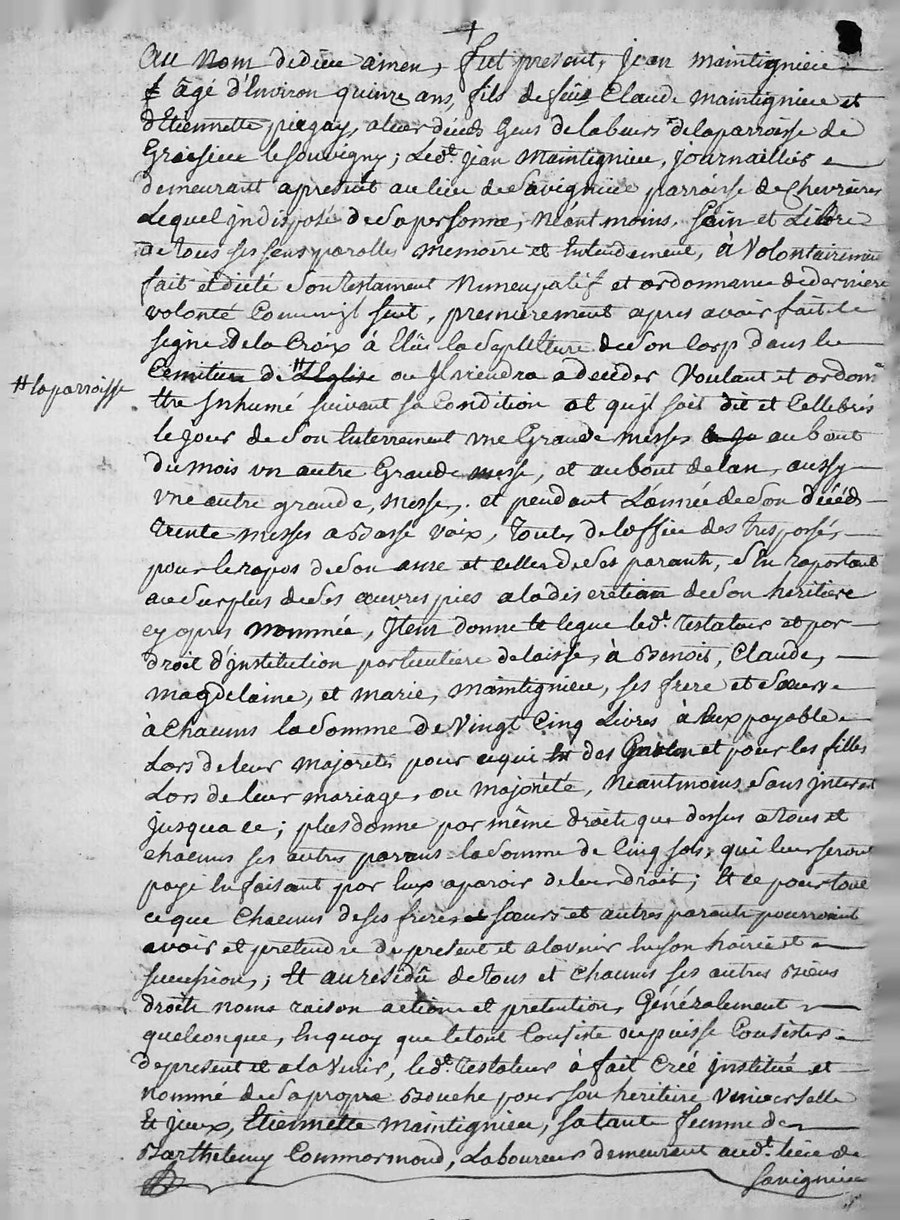 Au Nom de dieu amen, fut present, jean maintignieu
âgé d'Environ quinze ans, fils de feüs Claude maintignieu et
d'Etiennette pugay, a leur décéds Gens de labeurs de la parroisse de
Graisieu le souvigny; Led.t jean Maintignieu, journaillier
demeurant apresent au lieu de Savignieu parroisse de Chevrieres
Lequel jndisposé de Sa personne, Néant moins, Sain et Libre
de tous ses sens parolles memoire et Entendement, à Volontairement
fait et dicté Son testament Nuncupatif et ordonnance de derniere
volonté Comm'jl suit, premierement apres avoir fait le
signe de la Croix à Elüe la Sapulture de Son Corp dans le
Cemitiere de # L'Eglise ou Jl viendra a décéder Voulant et ordon.t
# la parroisse
Etre jnhumé suivant sa Condition et qu'jl soit dit et Cellebrés
le jour de Son Enterrement une Grande messes au bout
du mois un autre Grande messe, et au bout de lan, aussy
une autre grande, Messe, et pendant L'année de Son décéds
trente messes a Basse Voix, toutes de loffice des trepassés,
pour le repos de Son ame et celles de Ses parants, s'En raportant
au Surplus de Ses oeuvres pies a la discretion de Son heritiere
cy apres Nommée, jtem donne et legue led.t testateur et par
droit d'jnstitution particuliere delaisse, à Benoit, Claude,
magdelaine, et marie, maintignieu, ses frere et Soeurs
à Chacuns la Somme de Vingt Cinq Livres à Eux payable
Lors de leur majorités pour ce qui des Garcon et pour les filles
Lors de leur mariage, ou Majorité, Néantmoins Sans jnterest
jusqua ce; plus donne par même droit que dessus a tous et
chacuns ses autres parans la Somme de Cinq sols, qui leur seront
payé En faisant par Eux aparoir de leur droit; Et ce pour tout
ce que Chacuns de ses freres et soeurs et autres parants pourroint
avoir et pretendre de present et a lavenir En son hoirie et
succession; Et au residû de tous et Chacuns ses autres Biens
droits noms raison action et pretention, Généralement
quelconque, En quoy que le tout Consiste ou puisse Consister
de present et a la Venir, led.t testateur à fait Créé jnstitué et
nommé de Sa propre Bouche pour son heritiere Universelle
Etiennette maintignieu, sa tante femme de
Barthelemy Commarmond, Laboureur demeurant aud.t lieu de
Savignieu